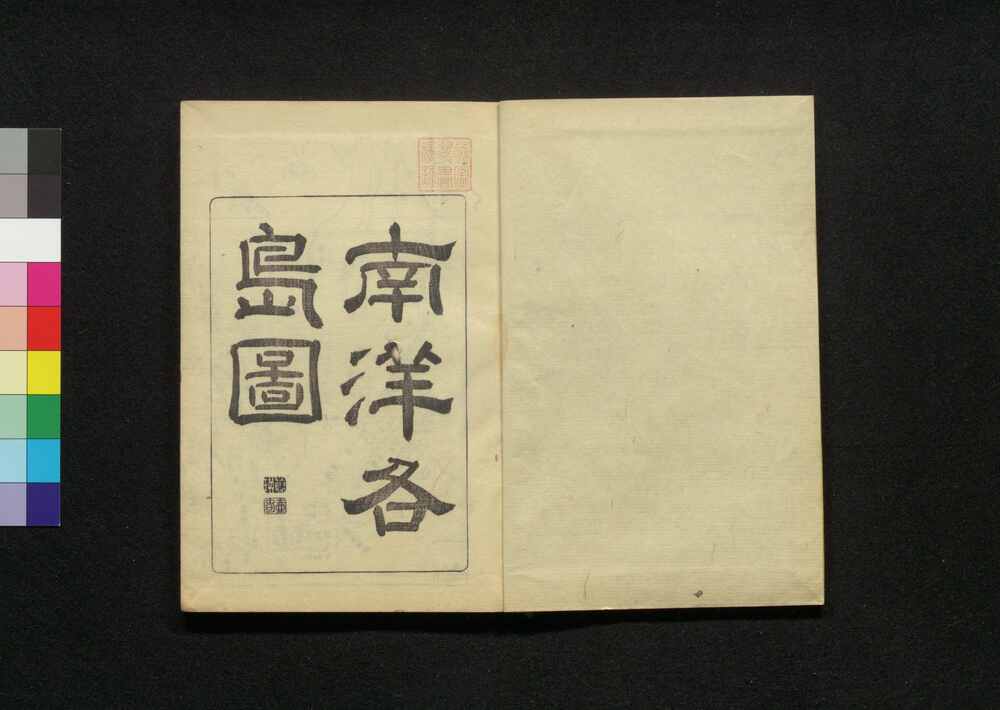 南洋各
島圖